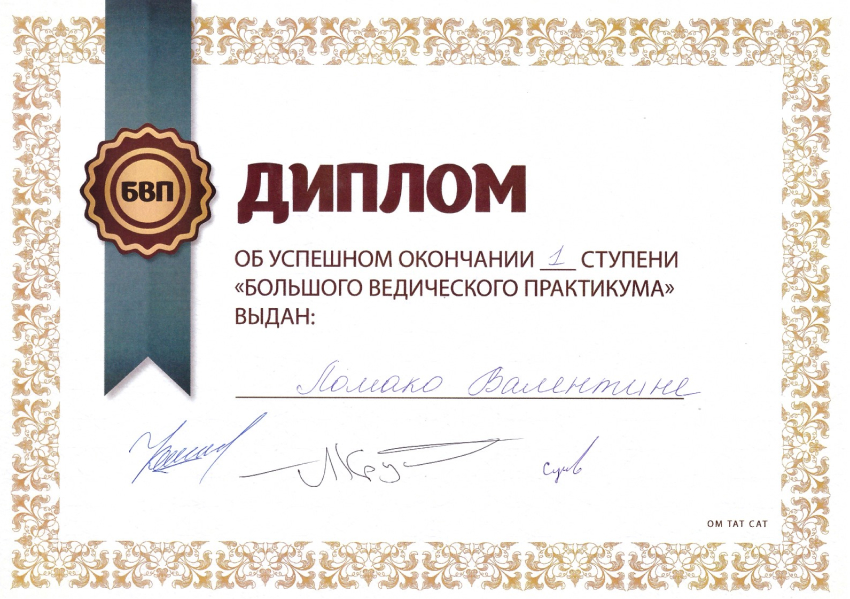 БВП
ДИПЛОМ
ОБ УСПЕШНОМ ОКОНЧАНИИ 1 СТУПЕНИ
«БОЛЬШОГО ВЕДИЧЕСКОГО ПРАКТИКУМА»
ВЫДАН:
Ломако Валентине
ОМ ТАТ САТ